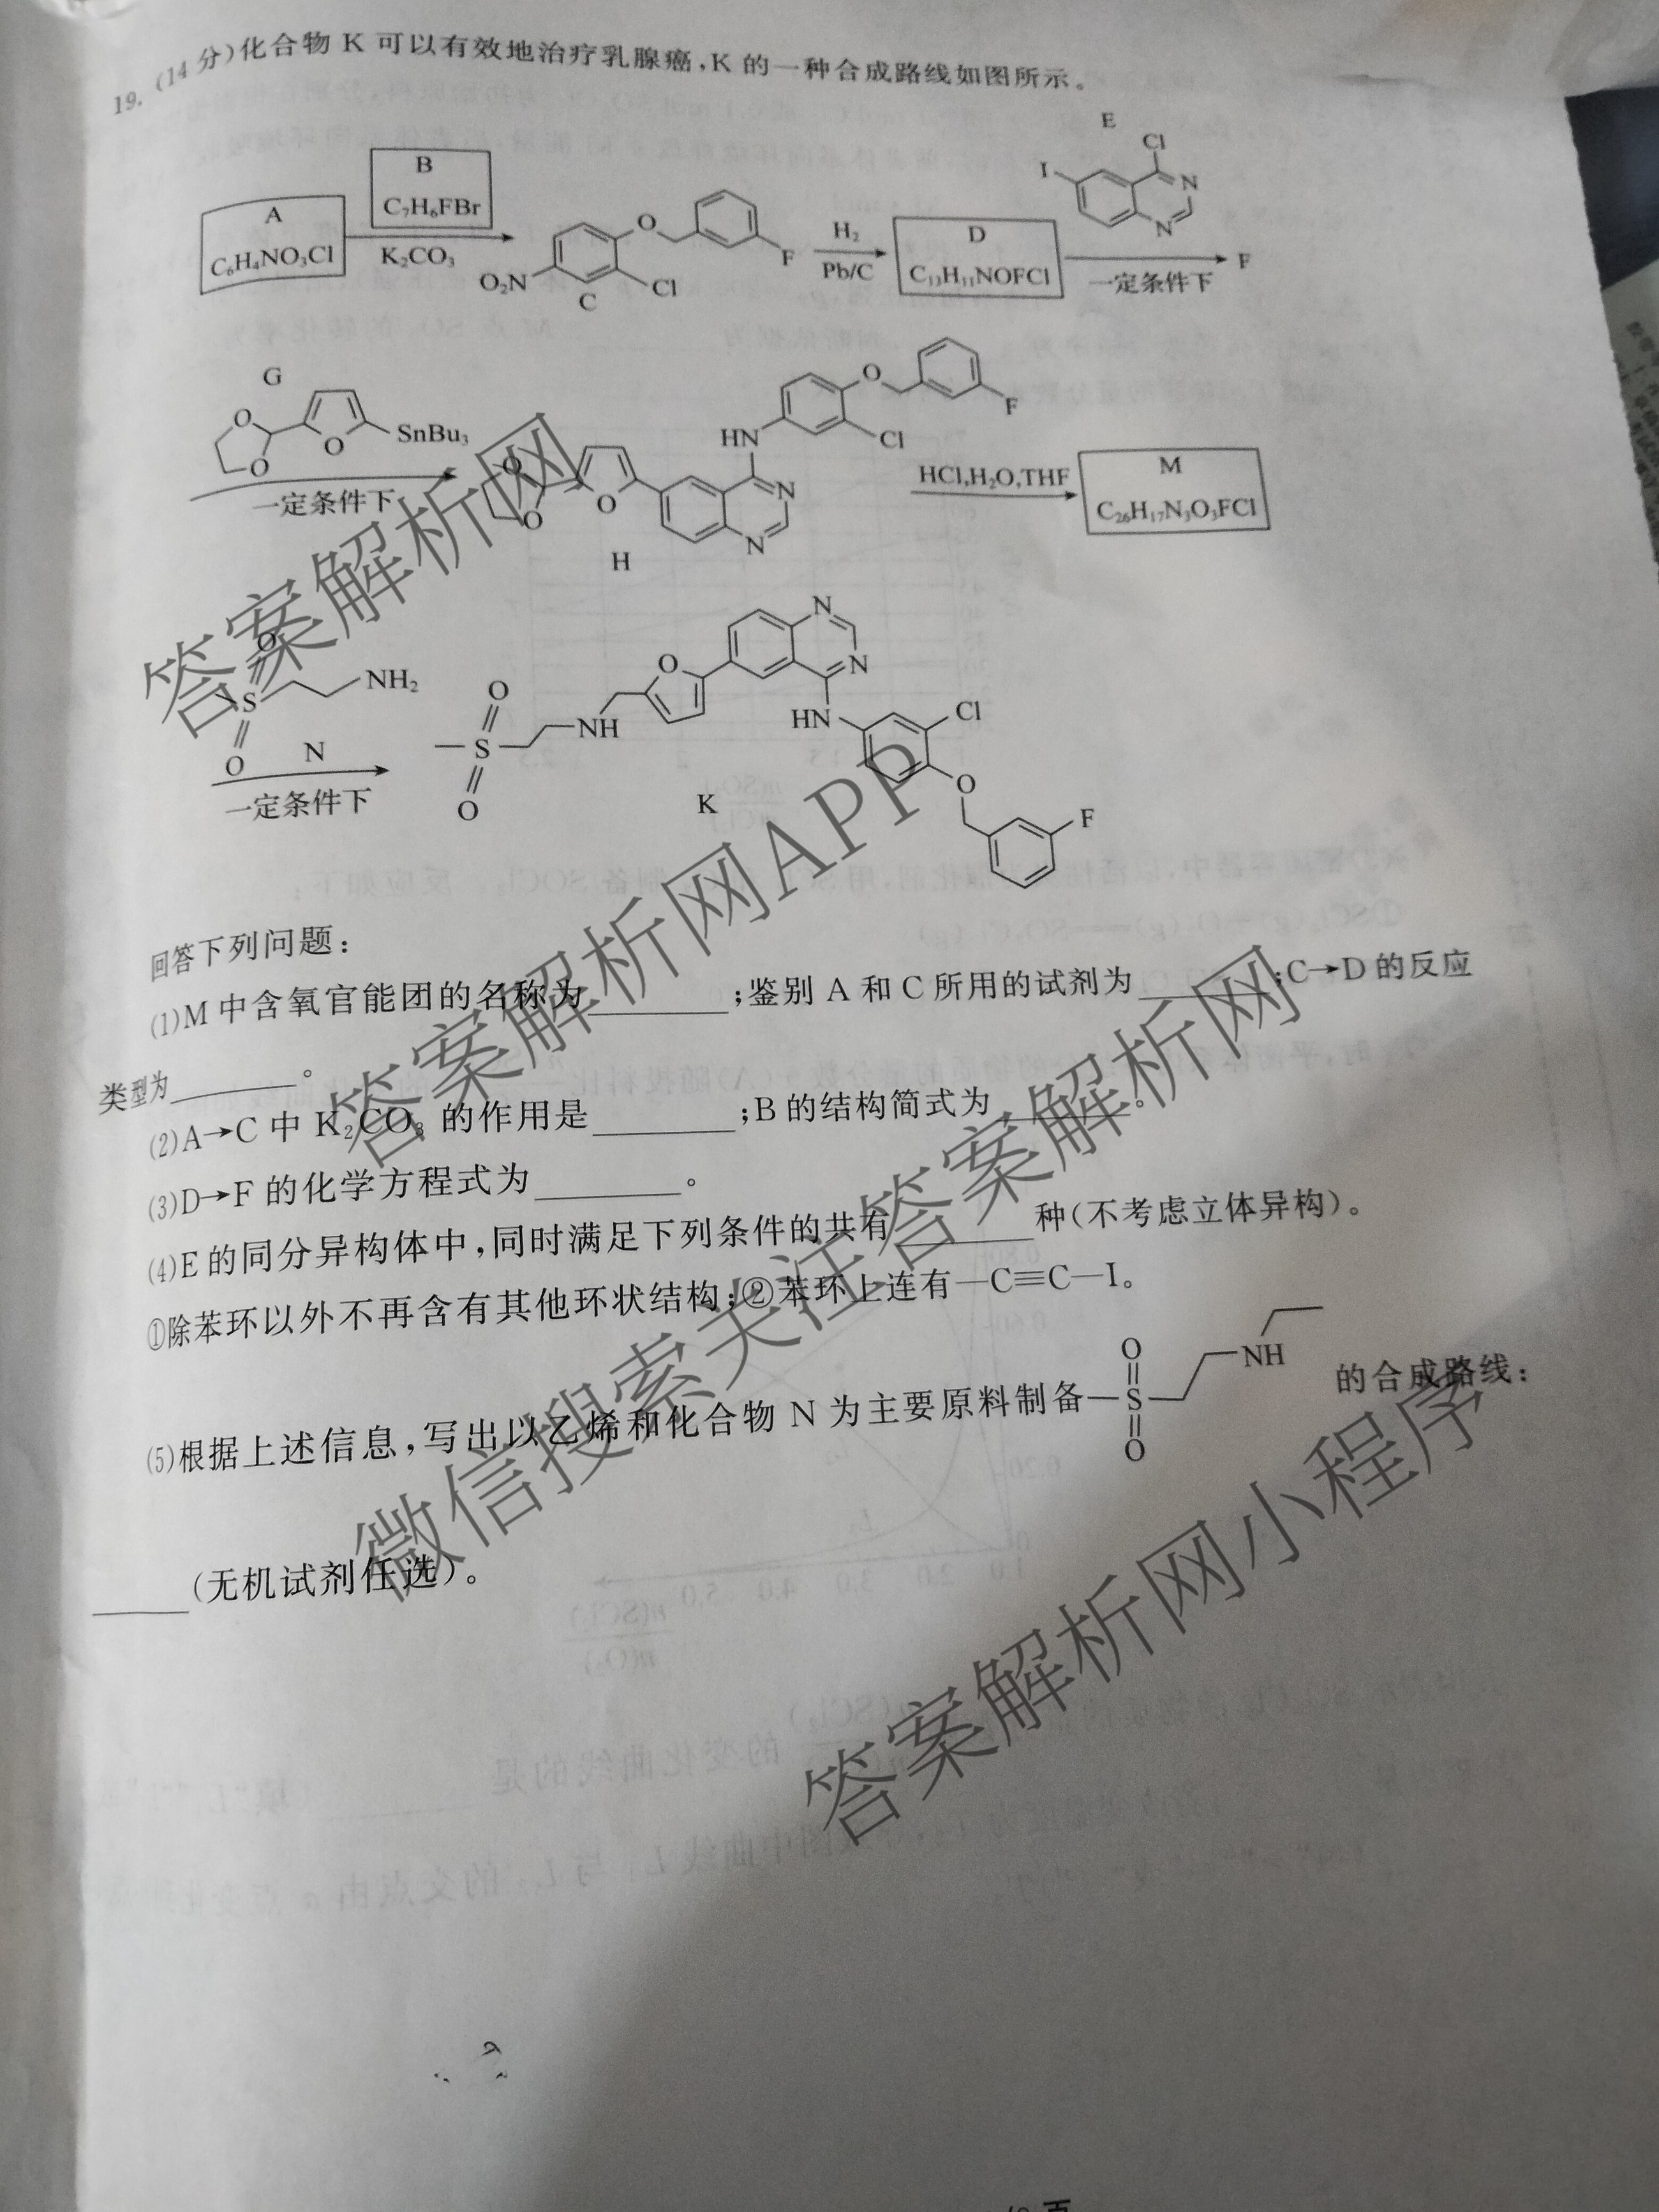 19. (14分)化合物 K 可以有效地治疗乳腺癌,K 的一种合成路线如图所示。
A
C₆H₄NO₃Cl
B
C₇H₆FBr
K₂CO₃
O₂N
O
Cl
F
C
H₂
Pb/C
D
C₁₃H₁₁NOFCl
E
I
Cl
N
N
一定条件下
F
G
O
O
O
SnBu₃
一定条件下
O
O
O
HN
O
F
Cl
N
N
H
HCl,H₂O,THF
M
C₂₆H₁₇N₃O₃FCl
O
S
O
NH₂
N
一定条件下
O
S
O
NH
O
N
N
HN
Cl
O
F
K
回答下列问题:
(1)M 中含氧官能团的名称为________;鉴别 A 和 C 所用的试剂为________;C→D 的反应
类型为________。
(2)A→C 中 K₂CO₃ 的作用是________;B 的结构简式为________。
(3)D→F 的化学方程式为________。
(4)E 的同分异构体中,同时满足下列条件的共有________种(不考虑立体异构)。
①除苯环以外不再含有其他环状结构;②苯环上连有—C≡C—I。
(5)根据上述信息,写出以乙烯和化合物 N 为主要原料制备
O
S
O
NH
的合成路线:
________(无机试剂任选)。
答案解析网
答案解析网APP
微信搜索关注答案解析网
答案解析网小程序